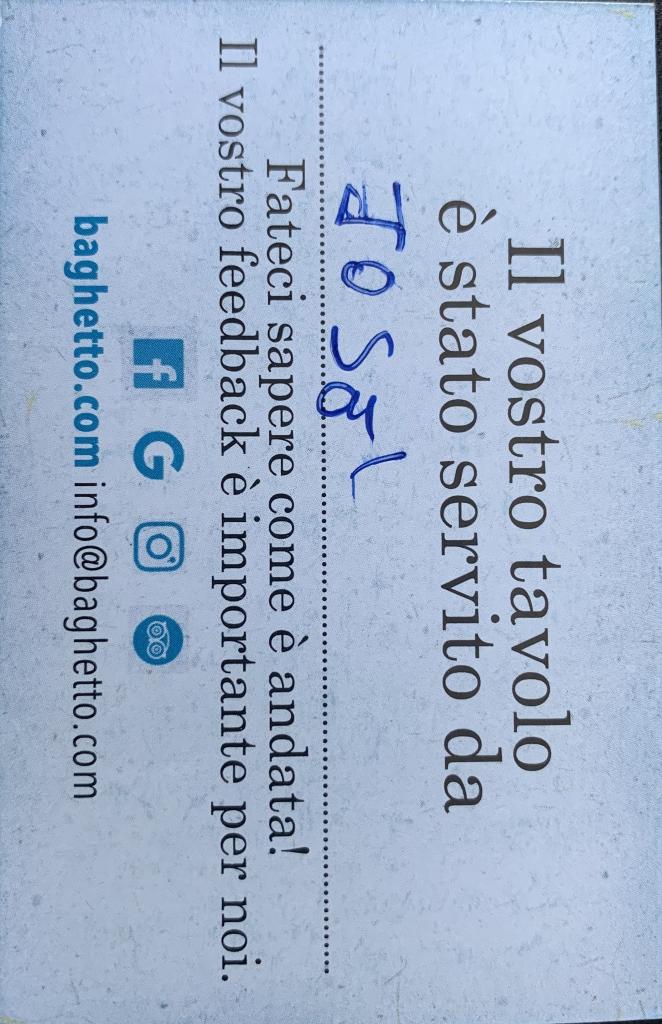 Il vostro tavolo
è stato servito da
Fateci sapere come è andata!
Il vostro feedback è importante per noi.
baghetto.com info@baghetto.com